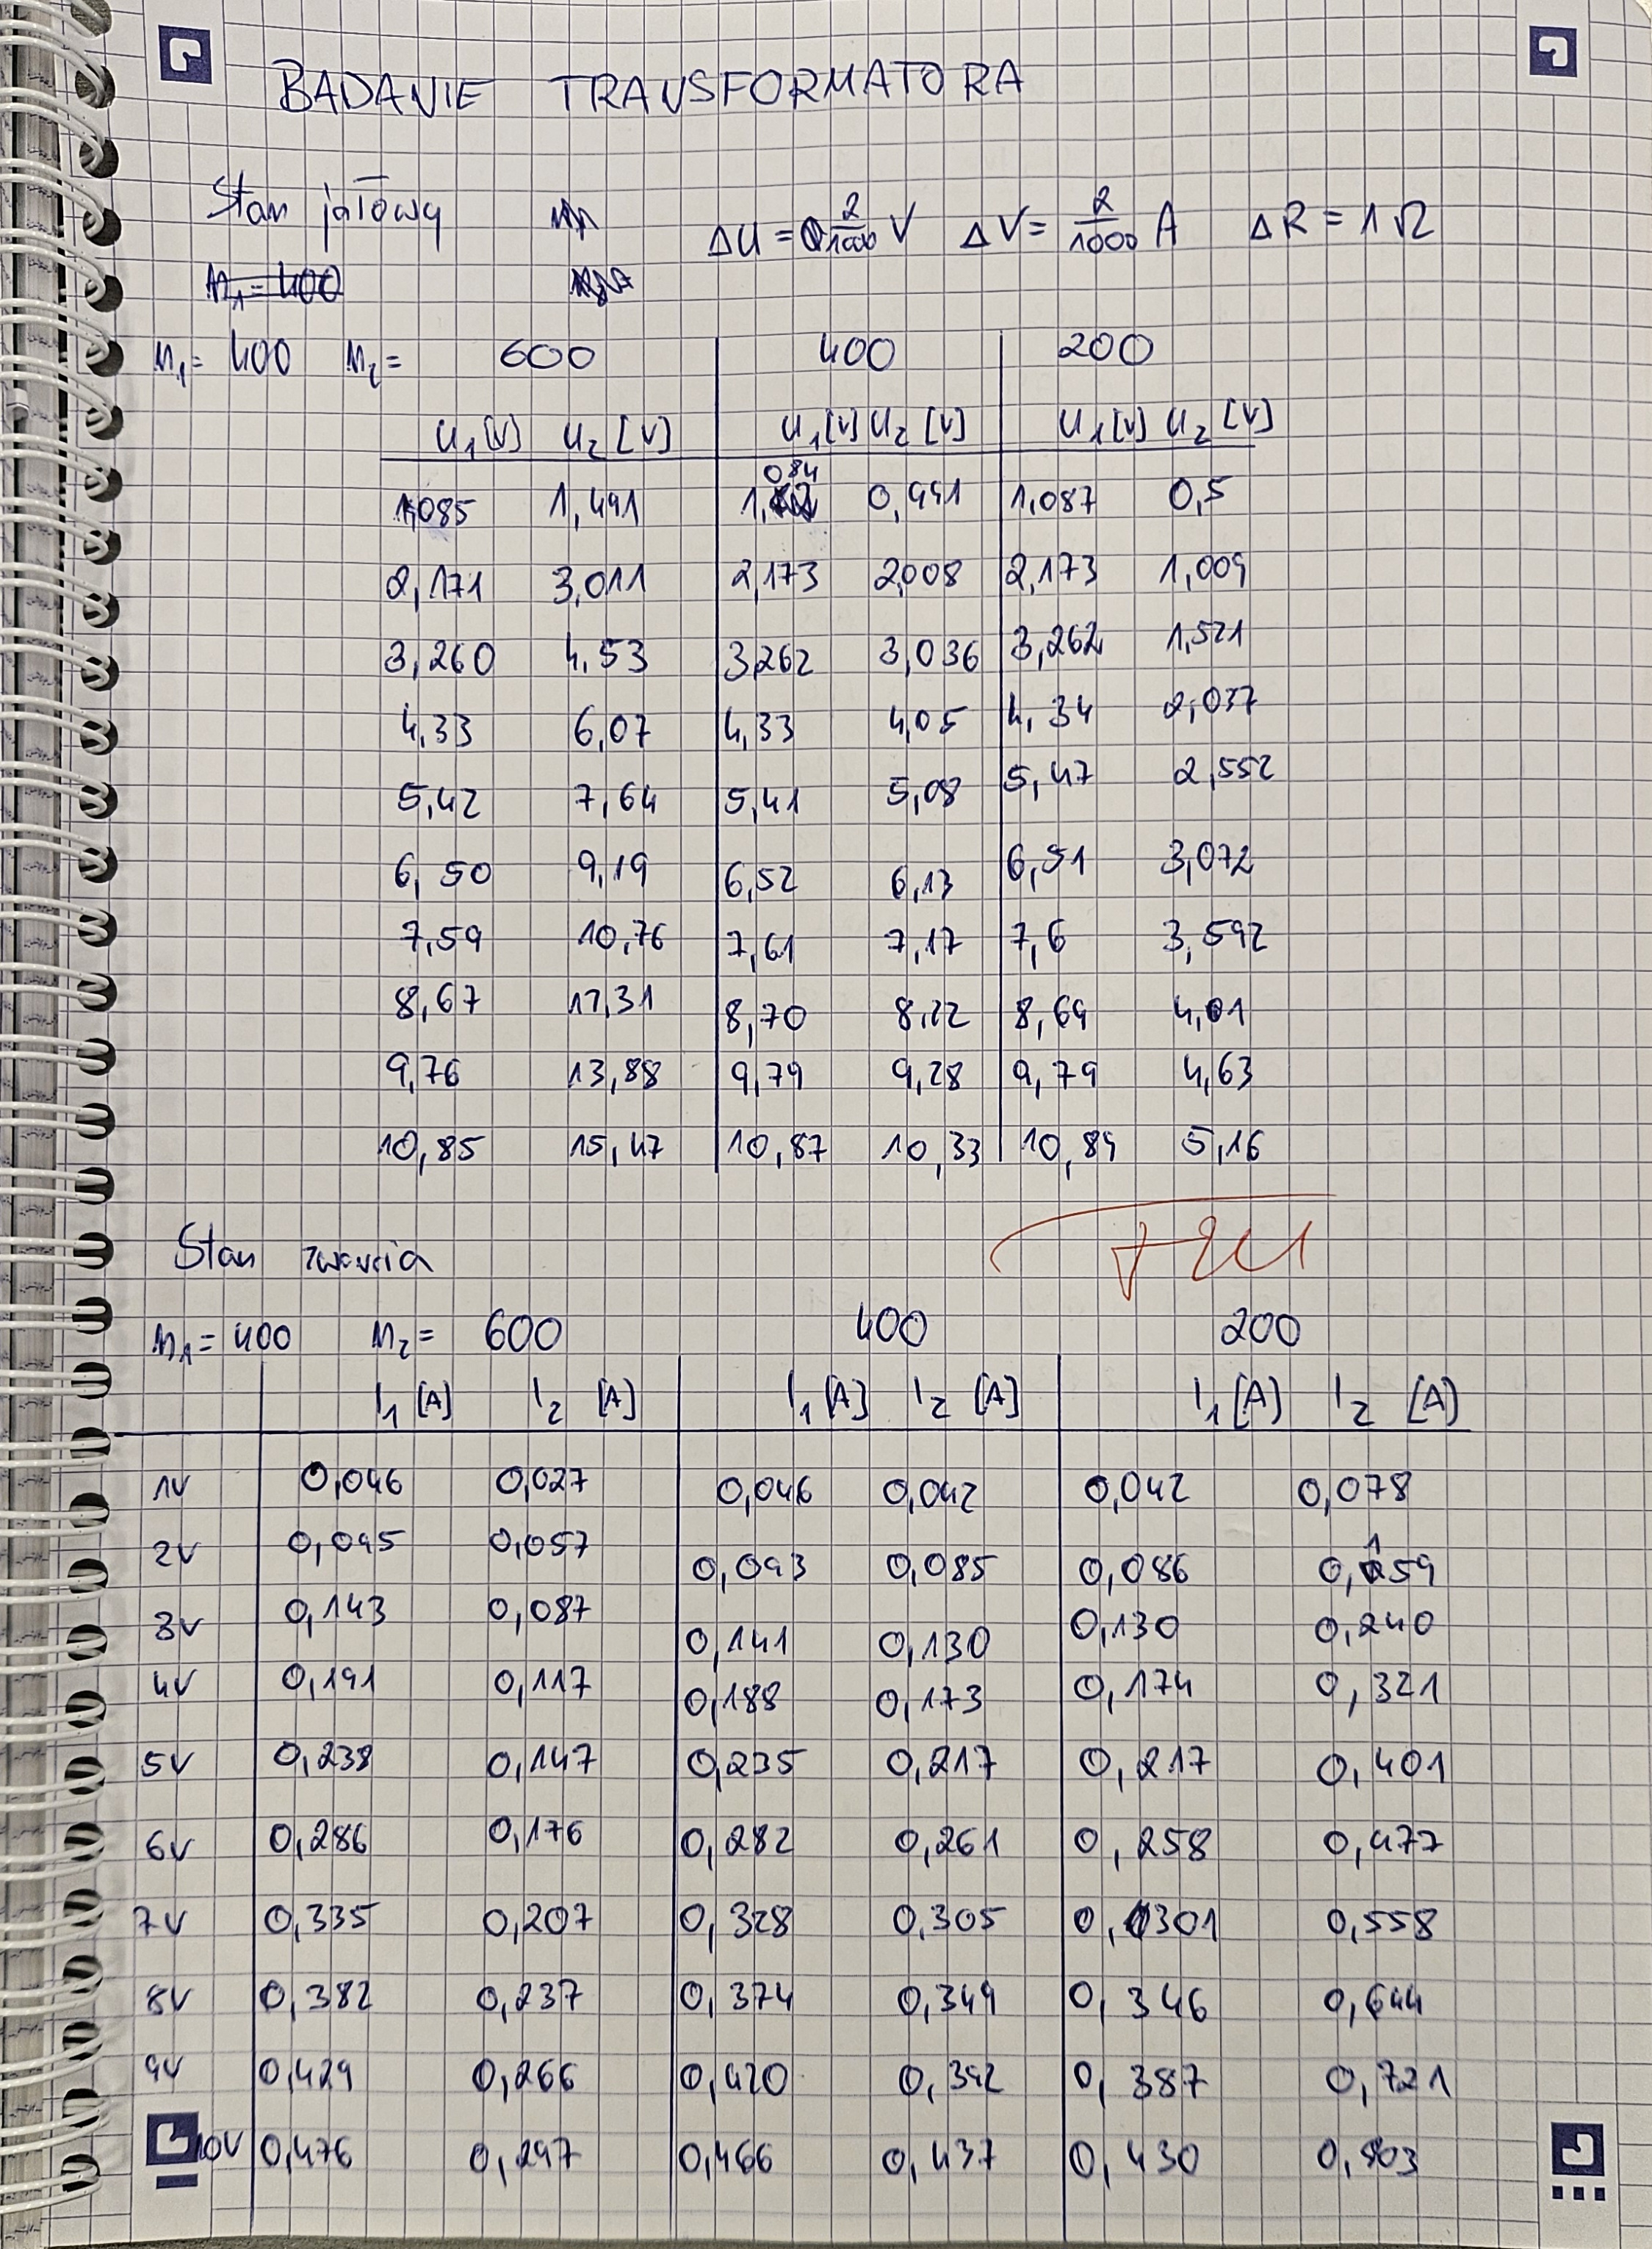 BADANIE TRANSFORMATORA
Stan jałowy ΔU = 2/1000 V ΔV = 2/1000 A ΔR = 1 Ω
n₁ = 400
n₁ = 400 n₂ = 600 400 200
U₁ [V] U₂ [V] U₁ [V] U₂ [V] U₁ [V] U₂ [V]
1,085 1,491 1,084 0,991 1,087 0,5
2,171 3,011 2,173 2,008 2,173 1,009
3,260 4,53 3,262 3,036 3,262 1,521
4,33 6,07 4,33 4,05 4,34 2,037
5,42 7,64 5,41 5,08 5,47 2,552
6,50 9,19 6,52 6,13 6,51 3,072
7,59 10,76 7,61 7,17 7,6 3,592
8,67 12,31 8,70 8,22 8,69 4,01
9,76 13,88 9,79 9,28 9,79 4,63
10,85 15,47 10,87 10,33 10,89 5,16
Stan zwarcia
n₁ = 400 n₂ = 600 400 200
I₁ [A] I₂ [A] I₁ [A] I₂ [A] I₁ [A] I₂ [A]
1V 0,046 0,027 0,046 0,042 0,042 0,078
2V 0,095 0,057 0,093 0,085 0,086 0,159
3V 0,143 0,087 0,141 0,130 0,130 0,240
4V 0,191 0,117 0,188 0,173 0,174 0,321
5V 0,238 0,147 0,235 0,217 0,217 0,401
6V 0,286 0,176 0,282 0,261 0,258 0,477
7V 0,335 0,207 0,328 0,305 0,301 0,558
8V 0,382 0,237 0,374 0,349 0,346 0,644
9V 0,429 0,266 0,420 0,392 0,387 0,721
10V 0,476 0,297 0,466 0,437 0,430 0,803